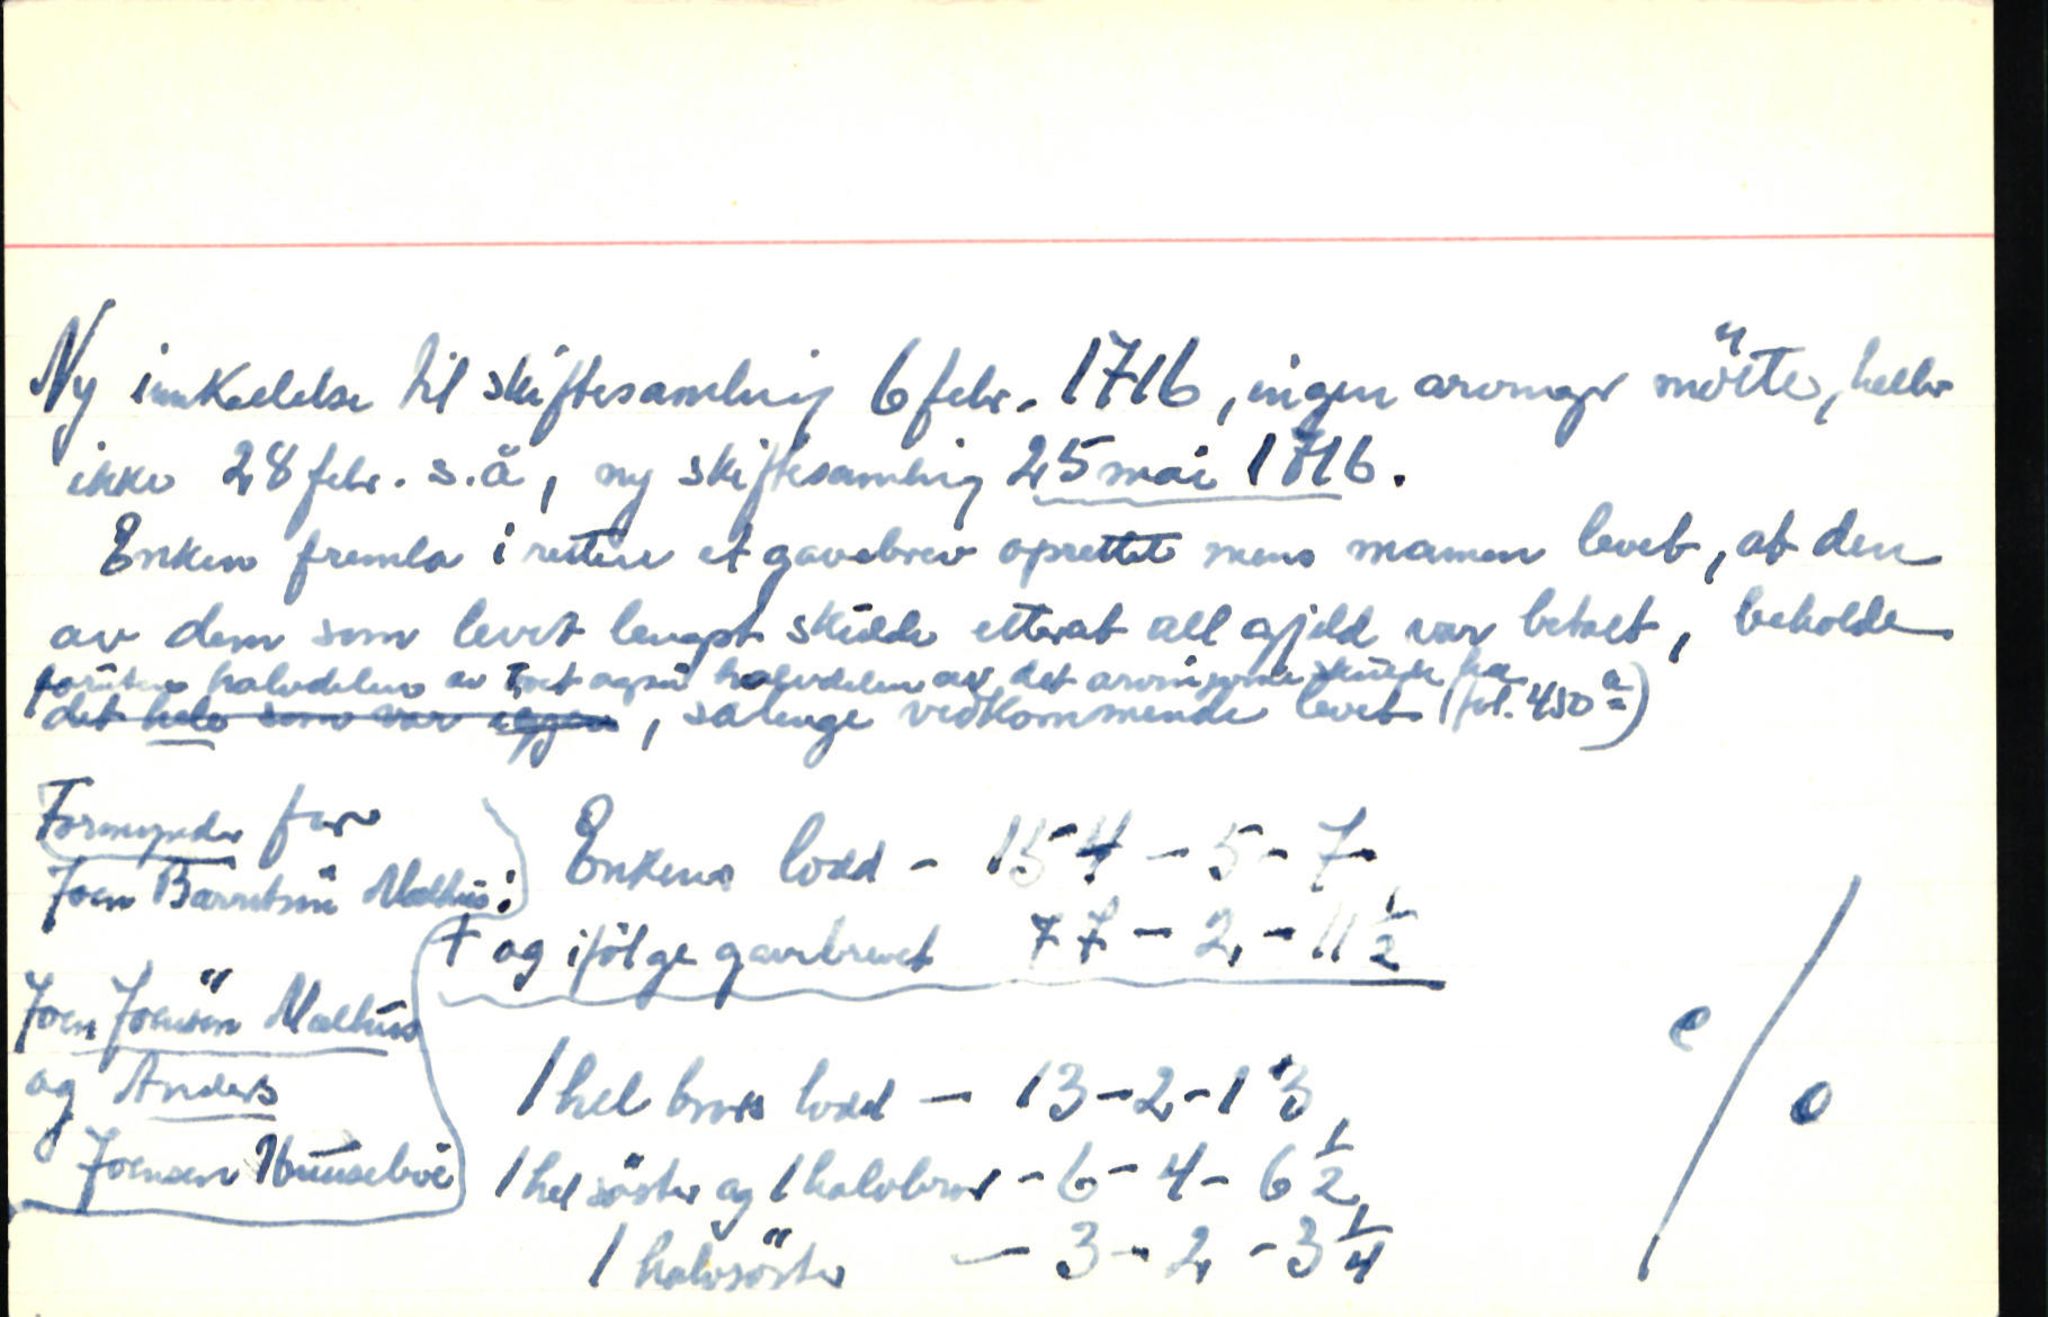 Ny innkallelse til skiftesamling 6 febr. 1716, ingen arvinger mötte, heller
ikke 28 febr. s.å, ny skiftesamling 25 mai 1716.
Enken fremla i retten et gavebrev oprettet mens mannen levet, at den
av dem som levet lengst skulde etterat all gjeld var betalt, beholde
foruten halvdelen av boet også halvdelen av det arvingene skulde ha
det hele som var igjen, sålenge vedkommende levet (fol. 450 a)
Formynder for
Joen Barretsen Mælhus:
Joen Joensen Mælhus
og Anders
Joensen Huuseböe
Enkens lodd - 154 - 5 - 7
+ og ifölge gavebrevet 77 - 2 - 11 1/2
1 hel brors lodd - 13 - 2 - 13
1 hel söster og 1 halvbror - 6 - 4 - 6 1/2
1 halvsöster - 3 - 2 - 3 1/4